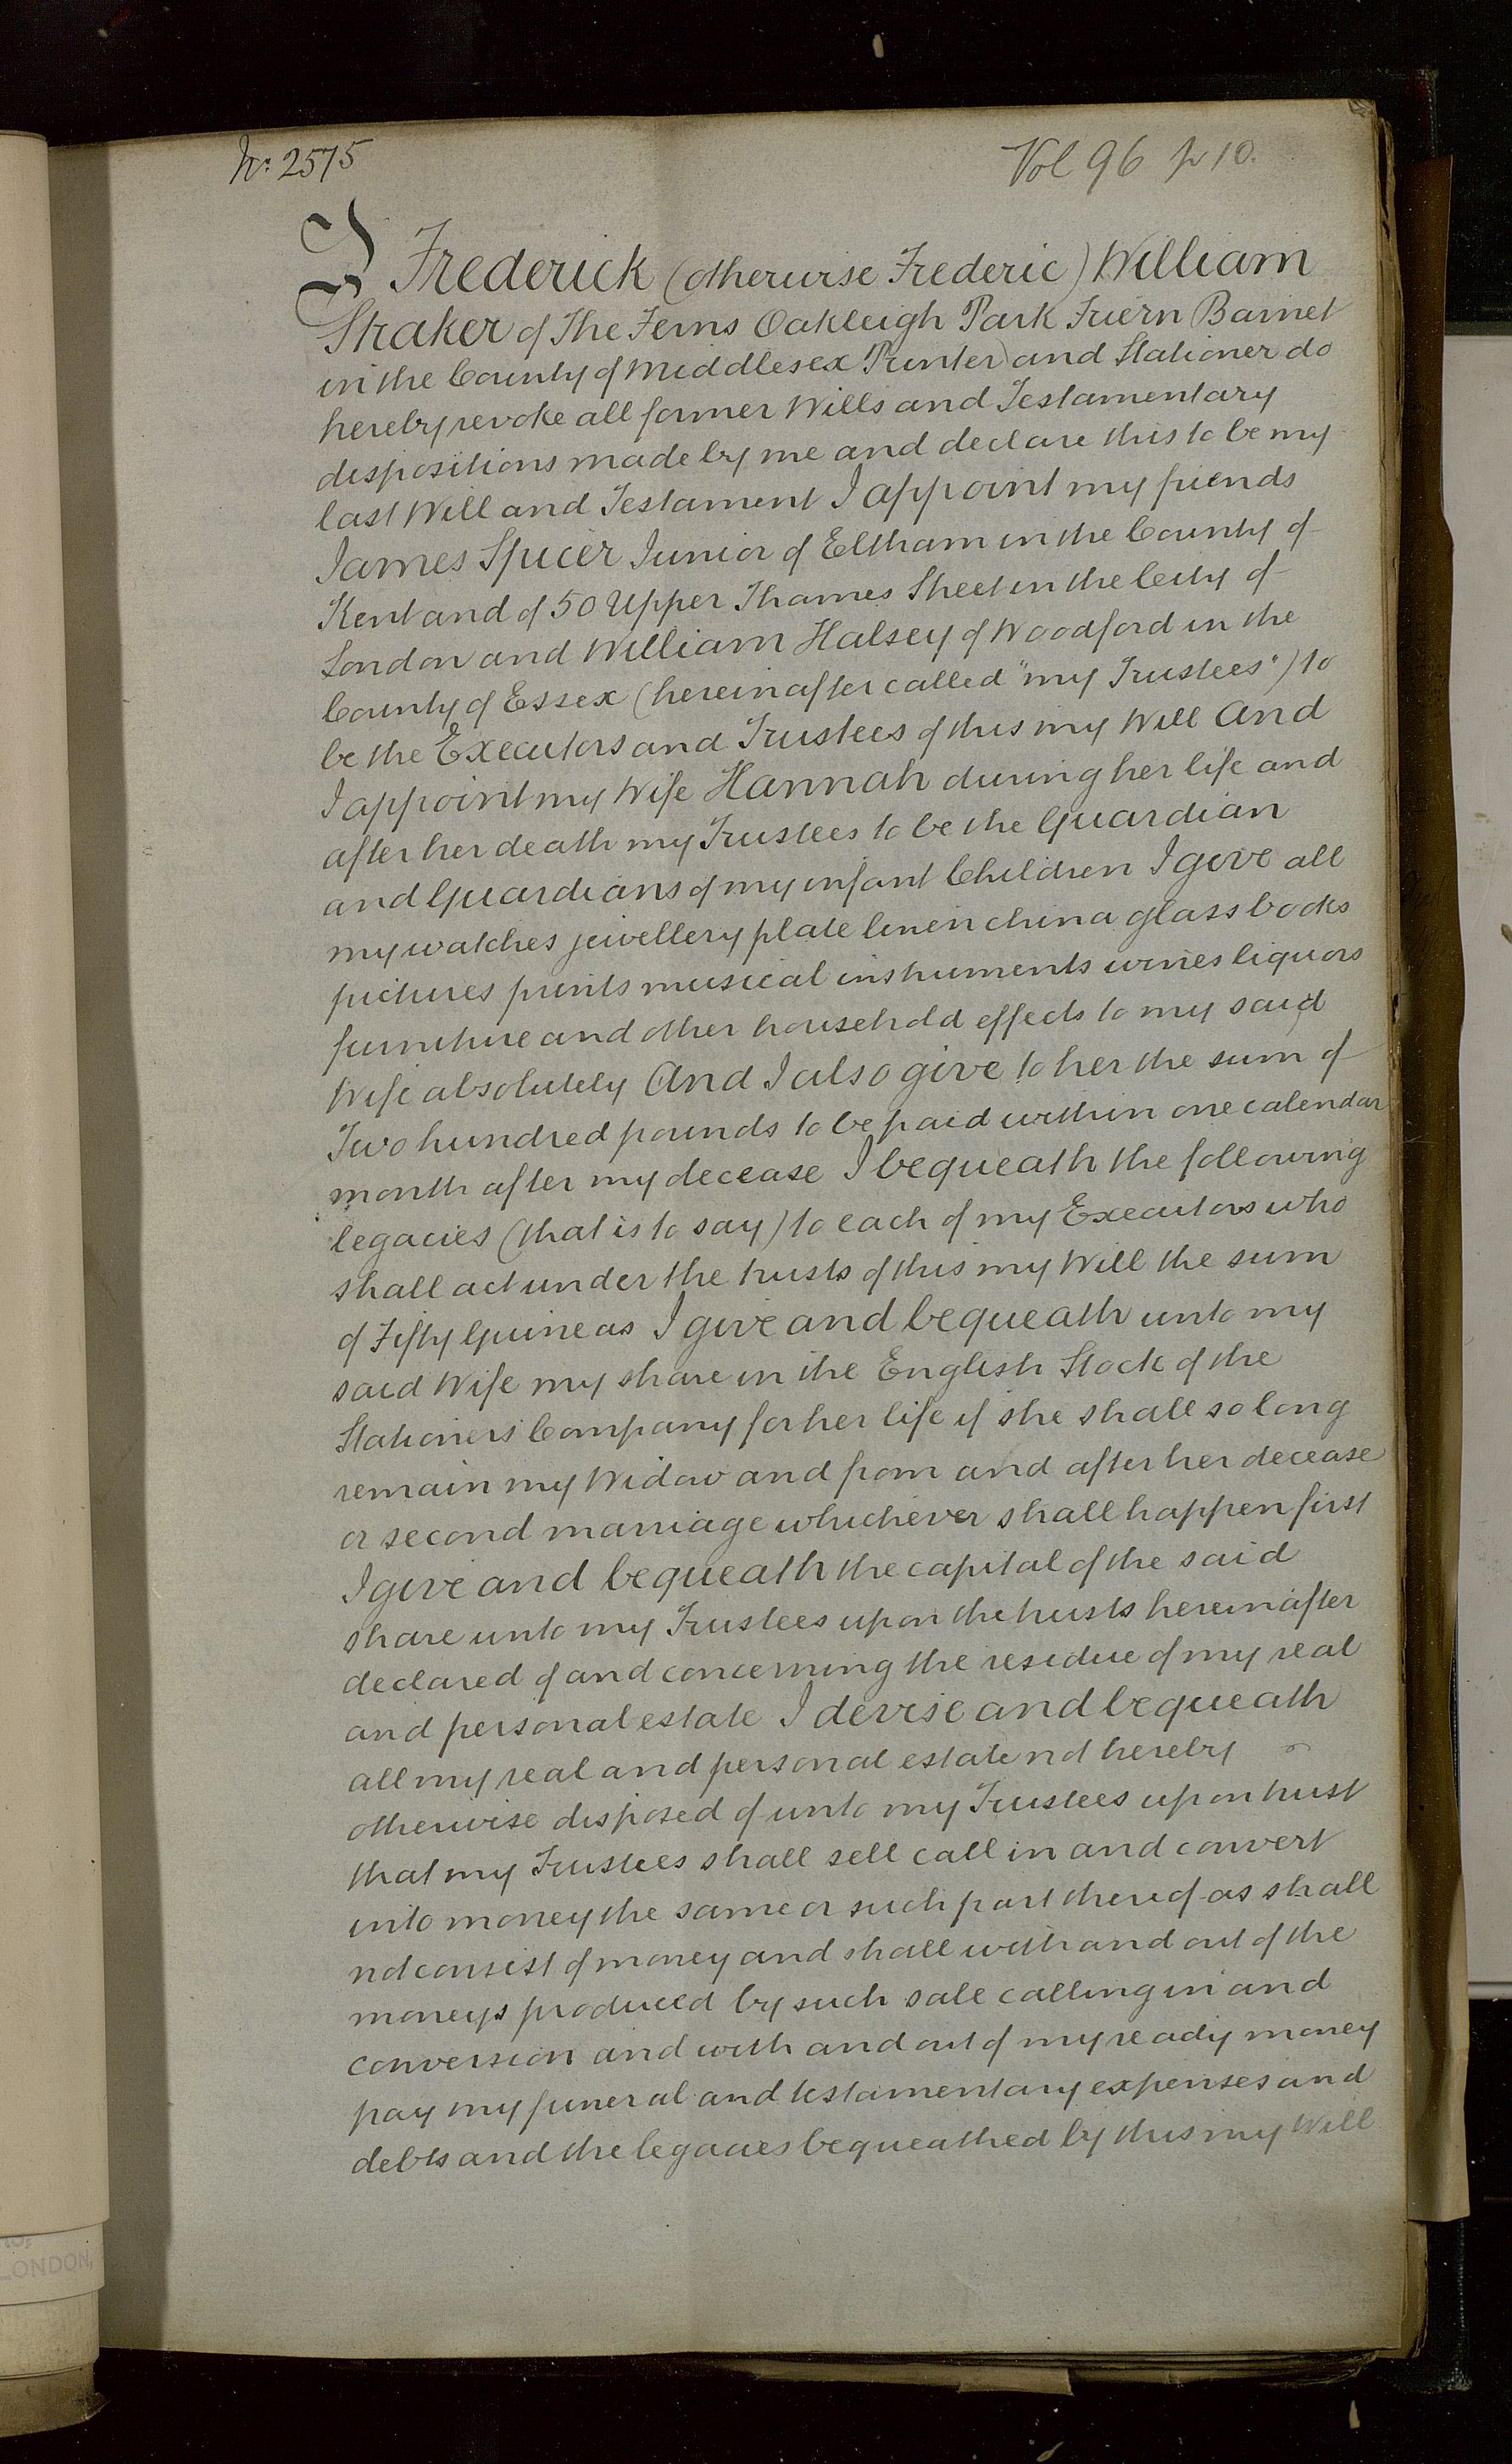 No. 2575
Vol 96 p 10.
I Frederick (otherwise Frederic) William
Straker of The Ferns Oakleigh Park Friern Barnet
in the County of Middlesex Printer and Stationer do
hereby revoke all former Wills and Testamentary
dispositions made by me and declare this to be my
last Will and Testament I appoint my friends
James Spicer Junior of Eltham in the County of
Kent and of 50 Upper Thames Street in the City of
London and William Halsey of Woodford in the
County of Essex (hereinafter called "my Trustees") to
be the Executors and Trustees of this my Will And
I appoint my Wife Hannah during her life and
after her death my Trustees to be the Guardian
and Guardians of my infant Children I give all
my watches jewellery plate linen china glass books
pictures prints musical instruments wines liquors
furniture and other household effects to my said
Wife absolutely And I also give to her the sum of
Two hundred pounds to be paid within one calendar
month after my decease I bequeath the following
legacies (that is to say) to each of my Executors who
shall act under the trusts of this my Will the sum
of Fifty Guineas I give and bequeath unto my
said Wife my share in the English Stock of the
Stationers' Company for her life if she shall so long
remain my Widow and from and after her decease
or second marriage whichever shall happen first
I give and bequeath the capital of the said
share unto my Trustees upon the trusts hereinafter
declared of and concerning the residue of my real
and personal estate I devise and bequeath
all my real and personal estate not hereby
otherwise disposed of unto my Trustees upon trust
that my Trustees shall sell call in and convert
into money the same or such part thereof as shall
not consist of money and shall with and out of the
moneys produced by such sale calling in and
conversion and with and out of my ready money
pay my funeral and testamentary expenses and
debts and the legacies bequeathed by this my Will
LONDON,